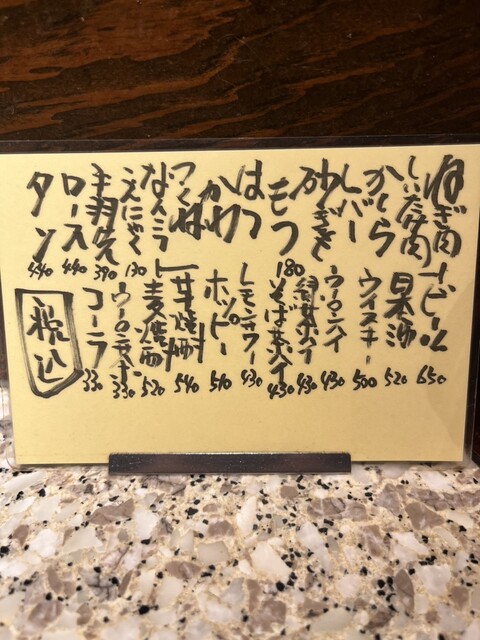 ねぎ肉
しいたけ肉
かしら
レバー
砂ぎも
もつ
はつ
かわ
つくね
なんこつ
180
こんにゃく 130
手羽先 390
ロース 440
タン 440
生ビール 650
日本酒 520
ウイスキー 500
ウーロンハイ 430
緑茶ハイ 430
そば茶ハイ 430
レモンサワー 430
ホッピー 510
芋焼酎 540
麦焼酎 520
ウーロン茶 330
コーラ 330
税込